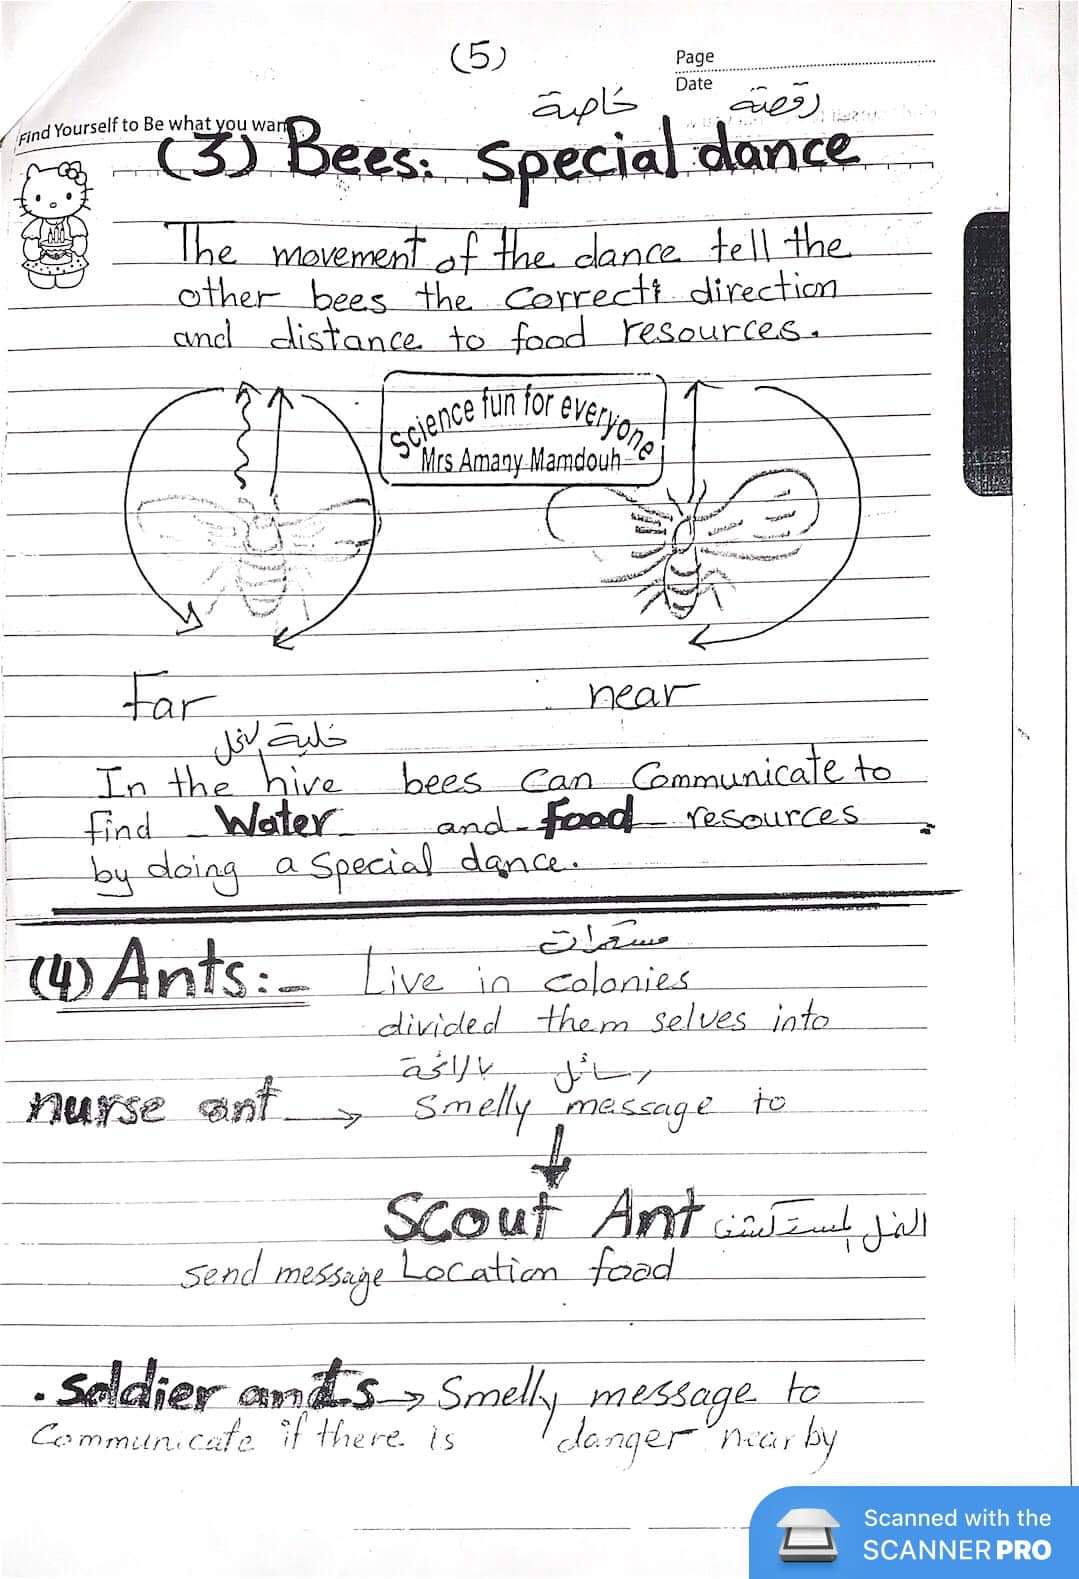 (5)
Page
Date
رقصة خاصة
Find Yourself to Be what you want
(3) Bees: Special dance
The movement of the dance tell the
other bees the correct direction
and distance to food resources.
Science fun for everyone
Mrs Amany Mamdouh
Far
near
خلية نحل
In the hive bees can Communicate to
find Water and food resources
by doing a special dance.
مستعمرات
(4) Ants:- Live in colonies
divided them selves into
رسائل بالرائحة
nurse ant → Smelly message to
Scout Ant النمل المستكشف
send message Location food
. Soldier ants → Smelly message to
Communicate if there is danger nearby
Scanned with the
SCANNER PRO